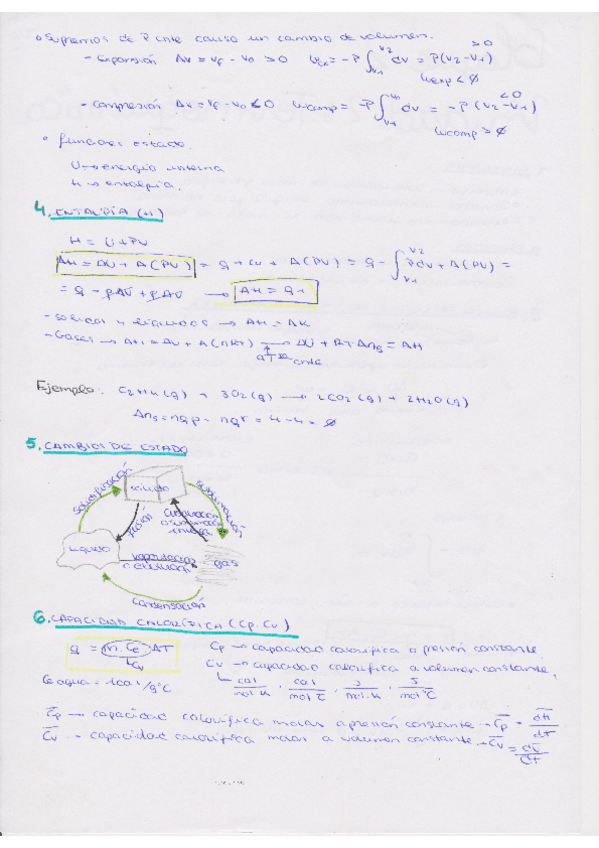 o Supremos de P cnte causa un cambio de volumen.
- Expansión ΔV = Vf - V0 > 0 Wex = -P ∫V1 V2 dV = P(V2-V1) >0
Wexp < ∅
- compresión ΔV = Vf - V0 < 0 Wcomp = -P ∫V1 dV = -P(V2-V1) <0
Wcomp > ∅
° funciones estado.
U → energía interna
H → entalpía.
4. ENTALPÍA (H)
H = U + PV
ΔH = ΔU + Δ(PV) = q + w + Δ(PV) = q - ∫V1 V2 PdV + Δ(PV) =
= q - pΔV + pΔV → ΔH =
- sólidos y líquidos →
- Gases → ΔH = ΔU + Δ(nRT) → ΔU + RT·Δng = ΔH
a T cnte
Ejemplo: C2H4(g) + 3O2(g) → 2CO2(g) + 2H2O(g)
Δng = ngp - ngr = 4 - 4 = ∅
5. CAMBIOS DE ESTADO
solidificación
sólido
sublimación
fusión
líquido
vaporización
gas
condensación
6. CAPACIDAD CALORÍFICA (Cp, Cv)
q = m·Ce·ΔT Cp → capacidad calorífica a presión constante
Cv Cv → capacidad calorífica a volumen constante,
Ce agua = 1cal/g°C cal/mol·K, cal/mol°C, J/mol·K, J/mol°C
C̅p → capacidad calorífica molar a presión constante → C̅p = dH̅/dT
C̅v → capacidad calorífica molar a volumen constante → C̅v =